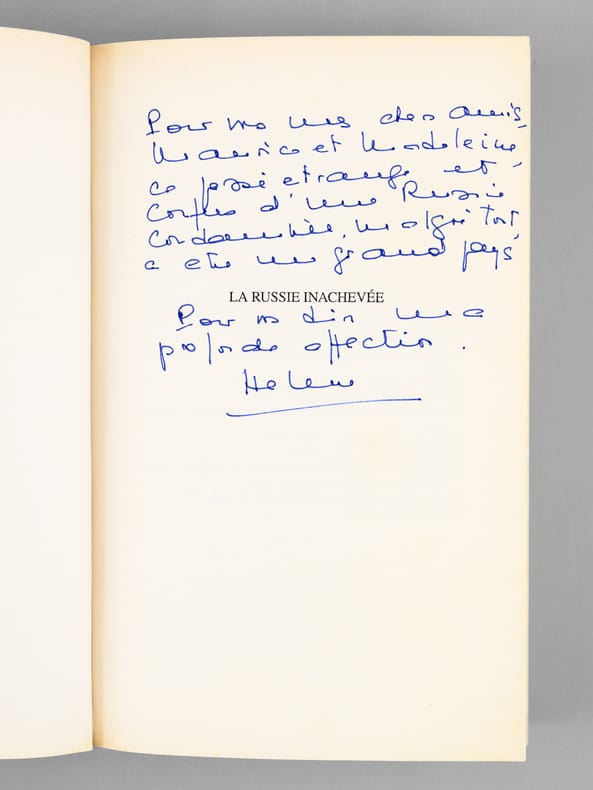 Pour vous mes chers amis,
Maurice et Madeleine,
ce passé étrange et
confus d'une Russie
condamnée, malgré tout
a être un grand pays
LA RUSSIE INACHEVÉE
Pour vous dire une
profonde affection.
Helene